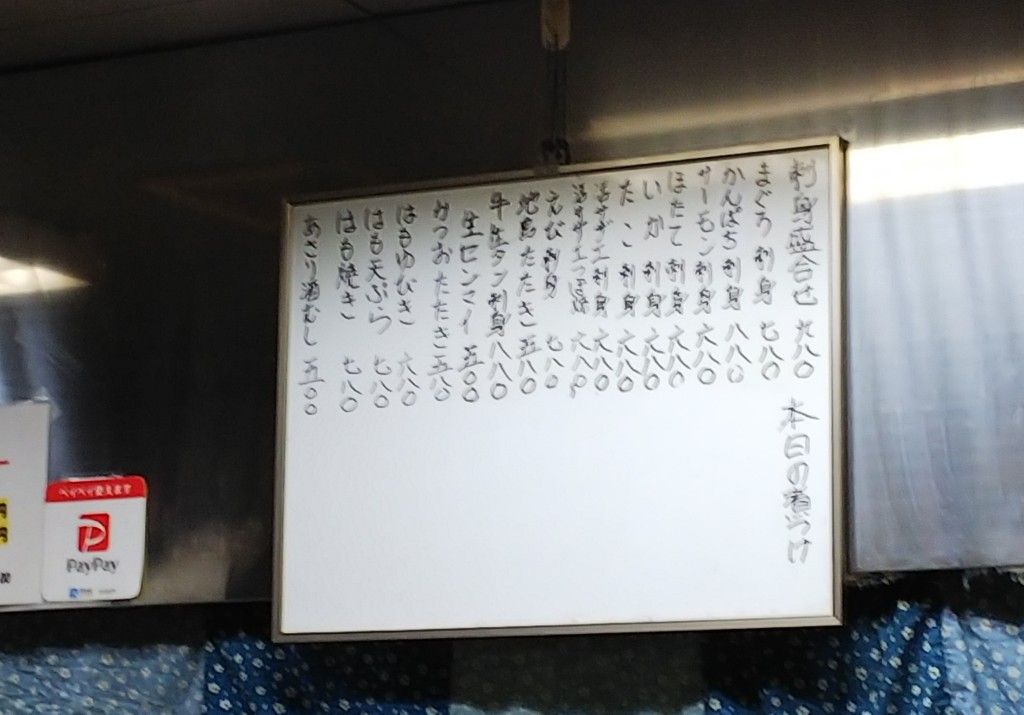 刺身盛合せ 九八〇
まぐろ刺身 七八〇
かんぱち刺身 八八〇
サーモン刺身 六八〇
ほたて刺身 六八〇
いか刺身 六八〇
たこ刺身 六八〇
活サザエ刺身 六八〇
活サザエつぼ焼 六八〇
えび刺身 七八〇
地鳥たたき 五八〇
牛生タン刺身 八八〇
生センマイ 五〇〇
かつおたたき 五八〇
はもゆびき 六八〇
はも天ぷら 七八〇
はも焼き 七八〇
あさり酒むし 五五〇
本日の煮つけ
ペイペイ使えます
PayPay
円
円